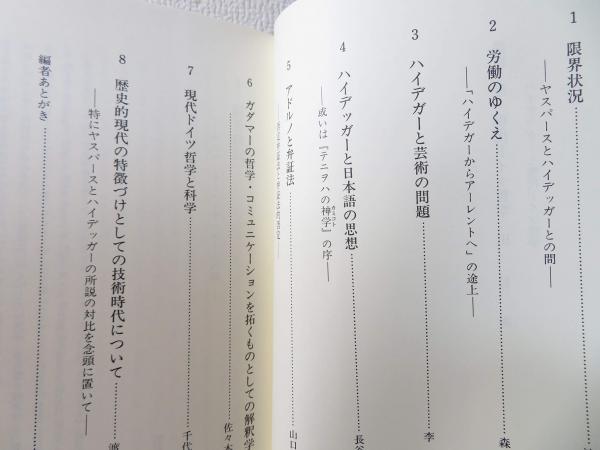 1 限界状況
――ヤスパースとハイデッガーとの間――
2 労働のゆくえ
――「ハイデガーからアーレントへ」の途上――
森
3 ハイデガーと芸術の問題
李
4 ハイデッガーと日本語の思想
――或いは『テニヲハの神学』の序――
長谷
5 アドルノと弁証法
山口
6 ガダマーの哲学・コミュニケーションを拓くものとしての解釈学
佐々木
7 現代ドイツ哲学と科学
千代
8 歴史的現代の特徴づけとしての技術時代について
――特にヤスパースとハイデッガーの所説の対比を念頭に置いて――
渡
編者あとがき